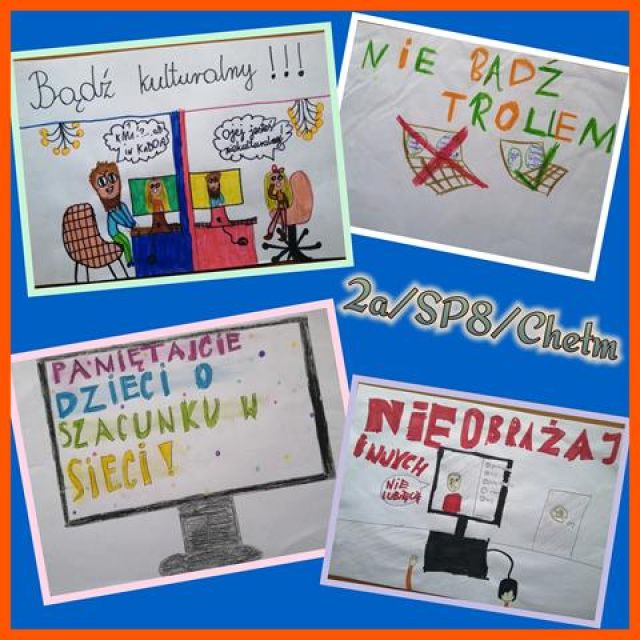 Bądź kulturalny !!!
Ojej jesteś
niekulturalny!
NIE BĄDŹ
TROLLEM
2a/SP8/Chełm
PAMIĘTAJCIE
DZIECI O
SZACUNKU W
SIECI!
NIE OBRAŻAJ
INNYCH
NIE
LUBIĘ CIĘ